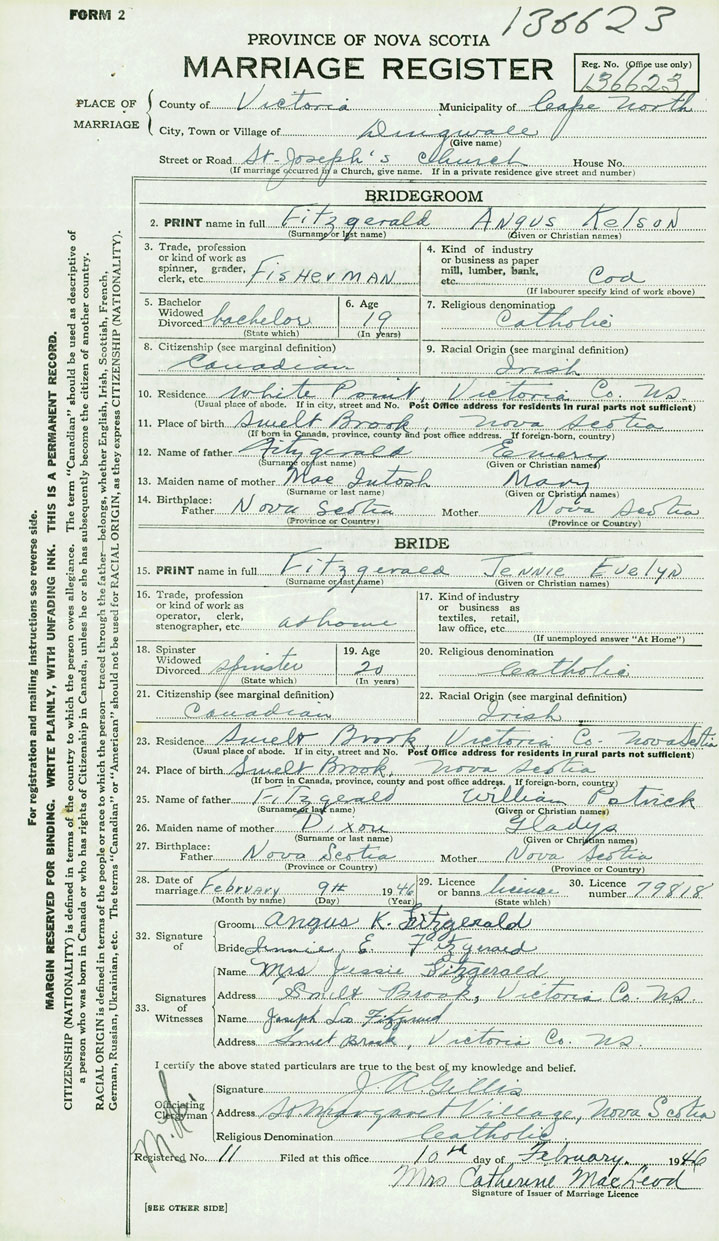 FORM 2
136623
PROVINCE OF NOVA SCOTIA
MARRIAGE REGISTER
Reg. No. (Office use only)
136623
PLACE OF MARRIAGE
County of Victoria Municipality of Cape North
City, Town or Village of Dingwall
(Give name)
Street or Road St-Joseph's Church House No.
(If marriage occurred in a Church, give name. If in a private residence give street and number)
BRIDEGROOM
2. PRINT name in full Fitzgerald Angus Kelson
(Surname or last name) (Given or Christian names)
3. Trade, profession or kind of work as spinner, grader, clerk, etc. FISHERMAN
4. Kind of industry or business as paper mill, lumber, bank, etc. Cod
(If labourer specify kind of work above)
5. Bachelor Widowed Divorced bachelor
(State which)
6. Age 19
(In years)
7. Religious denomination Catholic
8. Citizenship (see marginal definition) Canadian
9. Racial Origin (see marginal definition) Irish
10. Residence White Point, Victoria Co. NS.
(Usual place of abode. If in city, street and No. Post Office address for residents in rural parts not sufficient)
11. Place of birth Smelt Brook, Nova Scotia
(If born in Canada, province, county and post office address. If foreign-born, country)
12. Name of father Fitzgerald Emery
(Surname or last name) (Given or Christian names)
13. Maiden name of mother Mac Intosh Mary
(Surname or last name) (Given or Christian names)
14. Birthplace: Father Nova Scotia Mother Nova Scotia
(Province or Country) (Province or Country)
BRIDE
15. PRINT name in full Fitzgerald Jennie Evelyn
(Surname or last name) (Given or Christian names)
16. Trade, profession or kind of work as operator, clerk, stenographer, etc. at home
17. Kind of industry or business as textiles, retail, law office, etc.
(If unemployed answer "At Home")
18. Spinster Widowed Divorced spinster
(State which)
19. Age 20
(In years)
20. Religious denomination Catholic
21. Citizenship (see marginal definition) Canadian
22. Racial Origin (see marginal definition) Irish
23. Residence Smelt Brook, Victoria Co. Nova Scotia
(Usual place of abode. If in city, street and No. Post Office address for residents in rural parts not sufficient)
24. Place of birth Smelt Brook, Nova Scotia
(If born in Canada, province, county and post office address. If foreign-born, country)
25. Name of father Fitzgerald William Patrick
(Surname or last name) (Given or Christian names)
26. Maiden name of mother Dixon Gladys
(Surname or last name) (Given or Christian names)
27. Birthplace: Father Nova Scotia Mother Nova Scotia
(Province or Country) (Province or Country)
28. Date of marriage February 9th 1946
(Month by name) (Day) (Year)
29. Licence or banns license
(State which)
30. Licence number 79818
32. Signature of
Groom Angus K. Fitzgerald
Bride Jennie E. Fitzgerald
33. Signatures of Witnesses
Name Mrs Jessie Fitzgerald
Address Smelt Brook, Victoria Co. NS.
Name Joseph Leo Fitzgerald
Address Smelt Brook, Victoria Co. NS.
I certify the above stated particulars are true to the best of my knowledge and belief.
Officiating Clergyman
Signature J. A. Gillis
Address St Margaret Village, Nova Scotia
Religious Denomination Catholic
Registered No. 11 Filed at this office 10th day of February. 1946
Mrs Catherine MacLeod
Signature of Issuer of Marriage Licence
[SEE OTHER SIDE]
For registration and mailing instructions see reverse side.
MARGIN RESERVED FOR BINDING. WRITE PLAINLY, WITH UNFADING INK. THIS IS A PERMANENT RECORD.
CITIZENSHIP (NATIONALITY) is defined in terms of the country to which the person owes allegiance. The term "Canadian" should be used as descriptive of
a person who was born in Canada or who has rights of Citizenship in Canada, unless he or she has subsequently become the citizen of another country.
RACIAL ORIGIN is defined in terms of the people or race to which the person—traced through the father—belongs, whether English, Irish, Scottish, French,
German, Russian, Ukrainian, etc. The terms "Canadian" or "American" should not be used for RACIAL ORIGIN, as they express CITIZENSHIP (NATIONALITY).